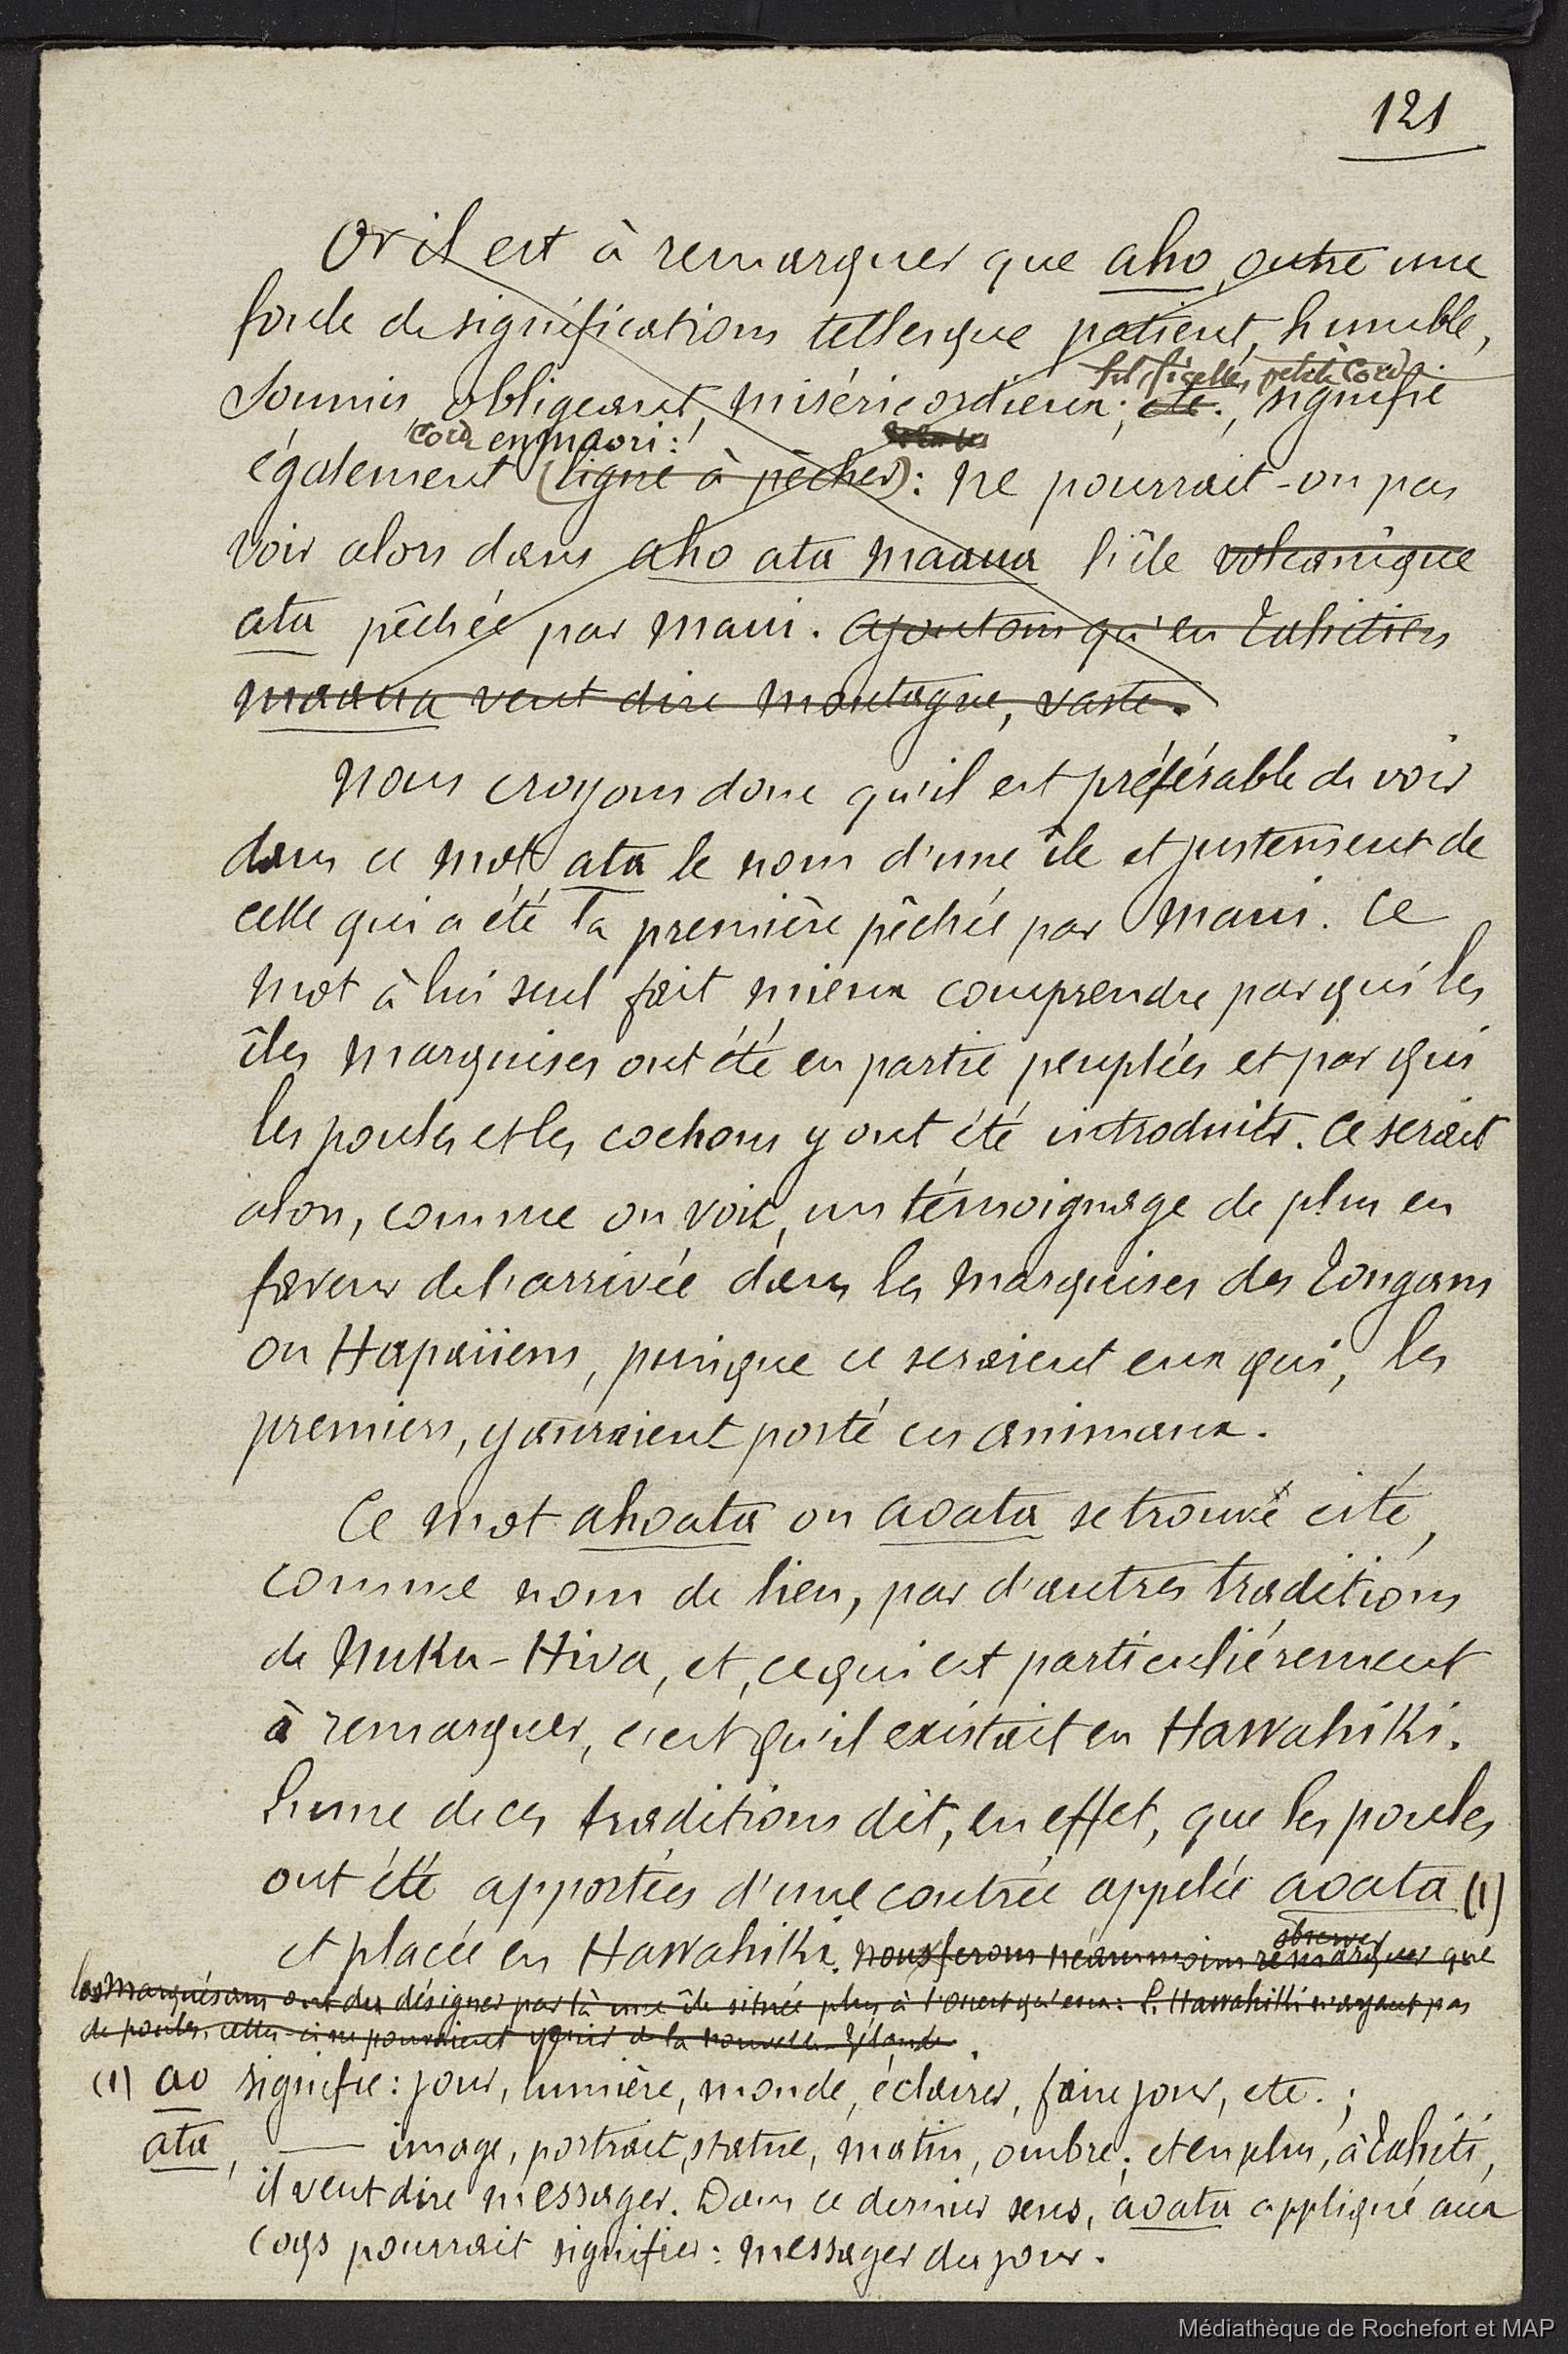 121
Or il est à remarquer que aho, outre une
foule de significations telles que patient, humble,
fil, ficelle, petite corde
soumis, obligeant, miséricordieux; etc., signifie
en maori:
également (ligne à pêcher): ne pourrait-on pas
voir alors dans aho ata maaua l'île volcanique
ata pêchée par Maui. Ajoutons qu'en Tahitien
maaua veut dire montagne, vaste.
Nous croyons donc qu'il est préférable de voir
dans ce mot ata le nom d'une île et justement de
celle qui a été la première pêchée par Maui. Ce
mot à lui seul fait mieux comprendre par qui les
îles Marquises ont été en partie peuplées et par qui
les poules et les cochons y ont été introduits. Ce serait
alors, comme on voit, un témoignage de plus en
faveur de l'arrivée dans les Marquises des Tongans
ou Hapaiiens, puisque ce seraient eux qui, les
premiers, y auraient porté ces animaux.
Ce mot ahoata ou aoata se trouve cité,
comme nom de lieu, par d'autres traditions
de Nuku-Hiva, et, ce qui est particulièrement
à remarquer, c'est qu'il existait en Hawahiki.
L'une de ces traditions dit, en effet, que les poules
ont été apportées d'une contrée appelée aoata (1)
observer
et placée en Hawahiki. Nous ferons néanmoins remarquer que
les Marquésans ont du désigner par là une île située plus à l'ouest qu'eux: l'Hawahiki n'ayant pas
de poules, celles-ci ne pouvaient venir de la Nouvelle-Zélande.
(1) ao signifie: jour, lumière, monde, éclairer, faire jour, etc.;
ata, — image, portrait, statue, matin, ombre; et en plus, à Tahiti,
il veut dire messager. Dans ce dernier sens, aoata appliqué aux
coqs pourrait signifier: messager du jour.
Médiathèque de Rochefort et MAP